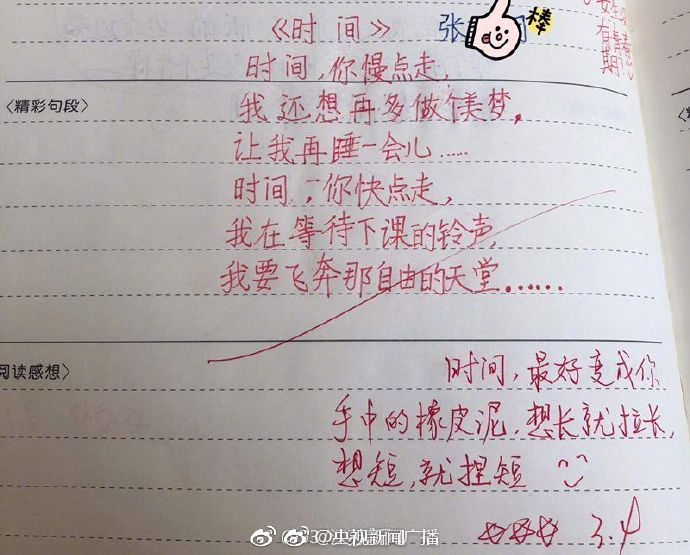 《时间》 张
棒
有
期
时间,你慢点走,
〈精彩句段〉
我还想再多做个美梦,
让我再睡一会儿……
时间,你快点走,
我在等待下课的铃声,
我要飞奔那自由的天堂……
阅读感想〉
时间,最好变成你
手中的橡皮泥,想长就拉长,
想短,就捏短
3.4
@央视新闻广播